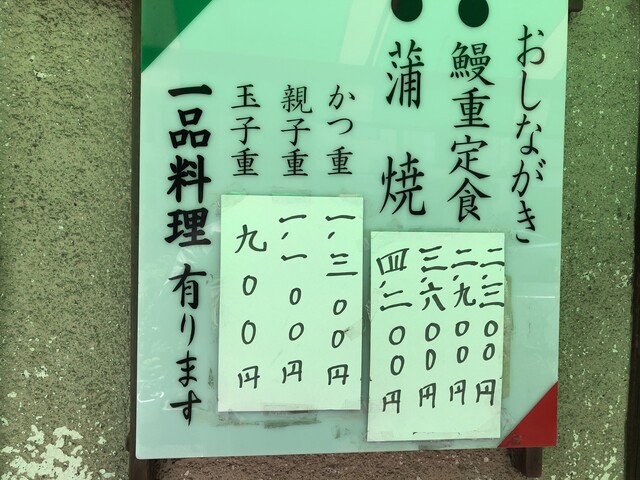 おしながき
鰻重定食
蒲焼
二、三〇〇円
二、九〇〇円
三、六〇〇円
四、二〇〇円
かつ重
一、三〇〇円
親子重
一、一〇〇円
玉子重
九〇〇円
一品料理有ります